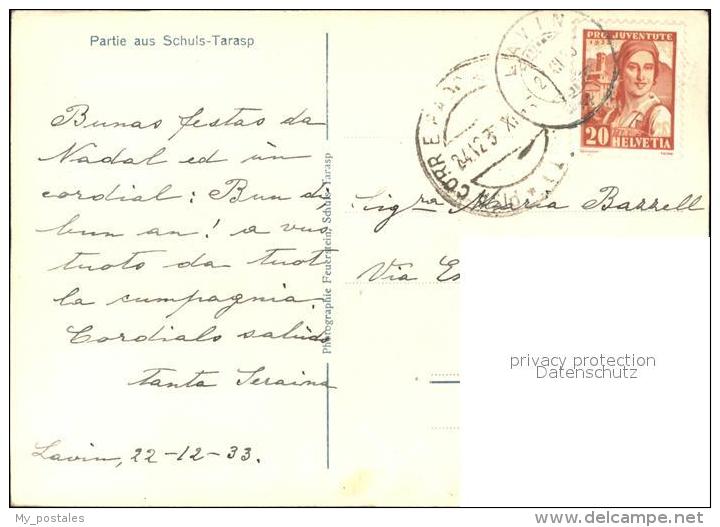 Partie aus Schuls-Tarasp
Bunas festas da
Nadal ed ün
cordial: Bun di,
bun an! a vus
tuots da tuot
la cumpagnia.
Cordials salüds
tanta Seraina
Lavin, 22-12-33.
Photographie Feuerstein, Schuls-Tarasp
LAVIN
PRO JUVENTUTE
1933
20
HELVETIA
Sigra Maria Bazzell
Via
privacy protection
Datenschutz
My_postales
www.delcampe.net